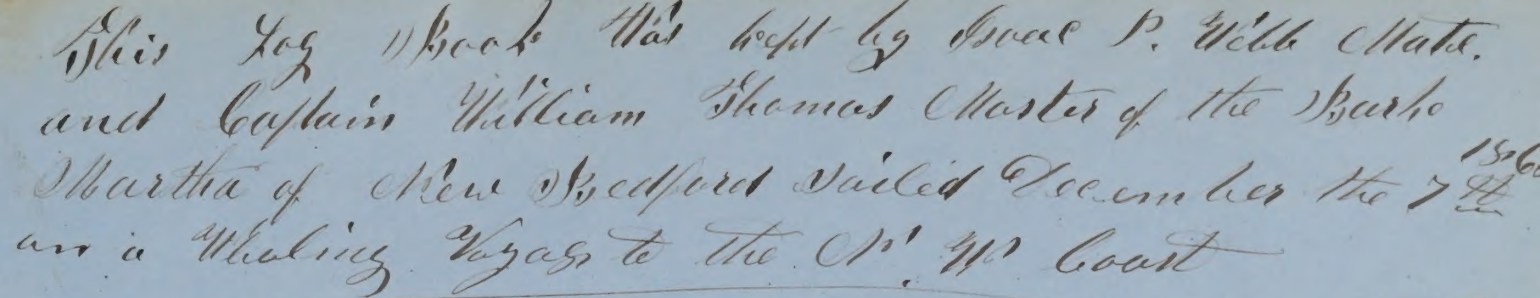 This Log Book Was kept by Isaac P. Webb Mate.
and Captain William Thomas Master of the Barke
Martha of New Bedford Sailed December the 7th
on a Whaling Voyage to the N. W. Coast